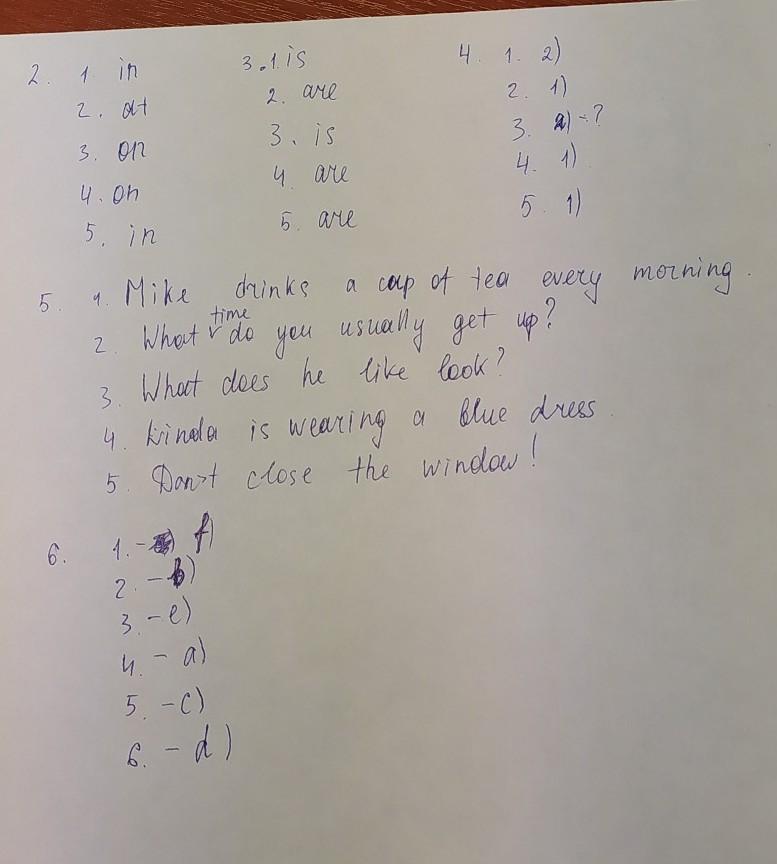 2. 1. in
2. at
3. on
4. on
5. in
3. 1. is
2. are
3. is
4. are
5. are
4. 1. 2)
2. 1)
3. 2) - ?
4. 1)
5. 1)
5. 1. Mike drinks a cup of tea every morning.
2. What time do you usually get up?
3. What does he like look?
4. Linda is wearing a blue dress.
5. Don't close the window!
6. 1. - f)
2. - b)
3. - e)
4. - a)
5. - c)
6. - d)